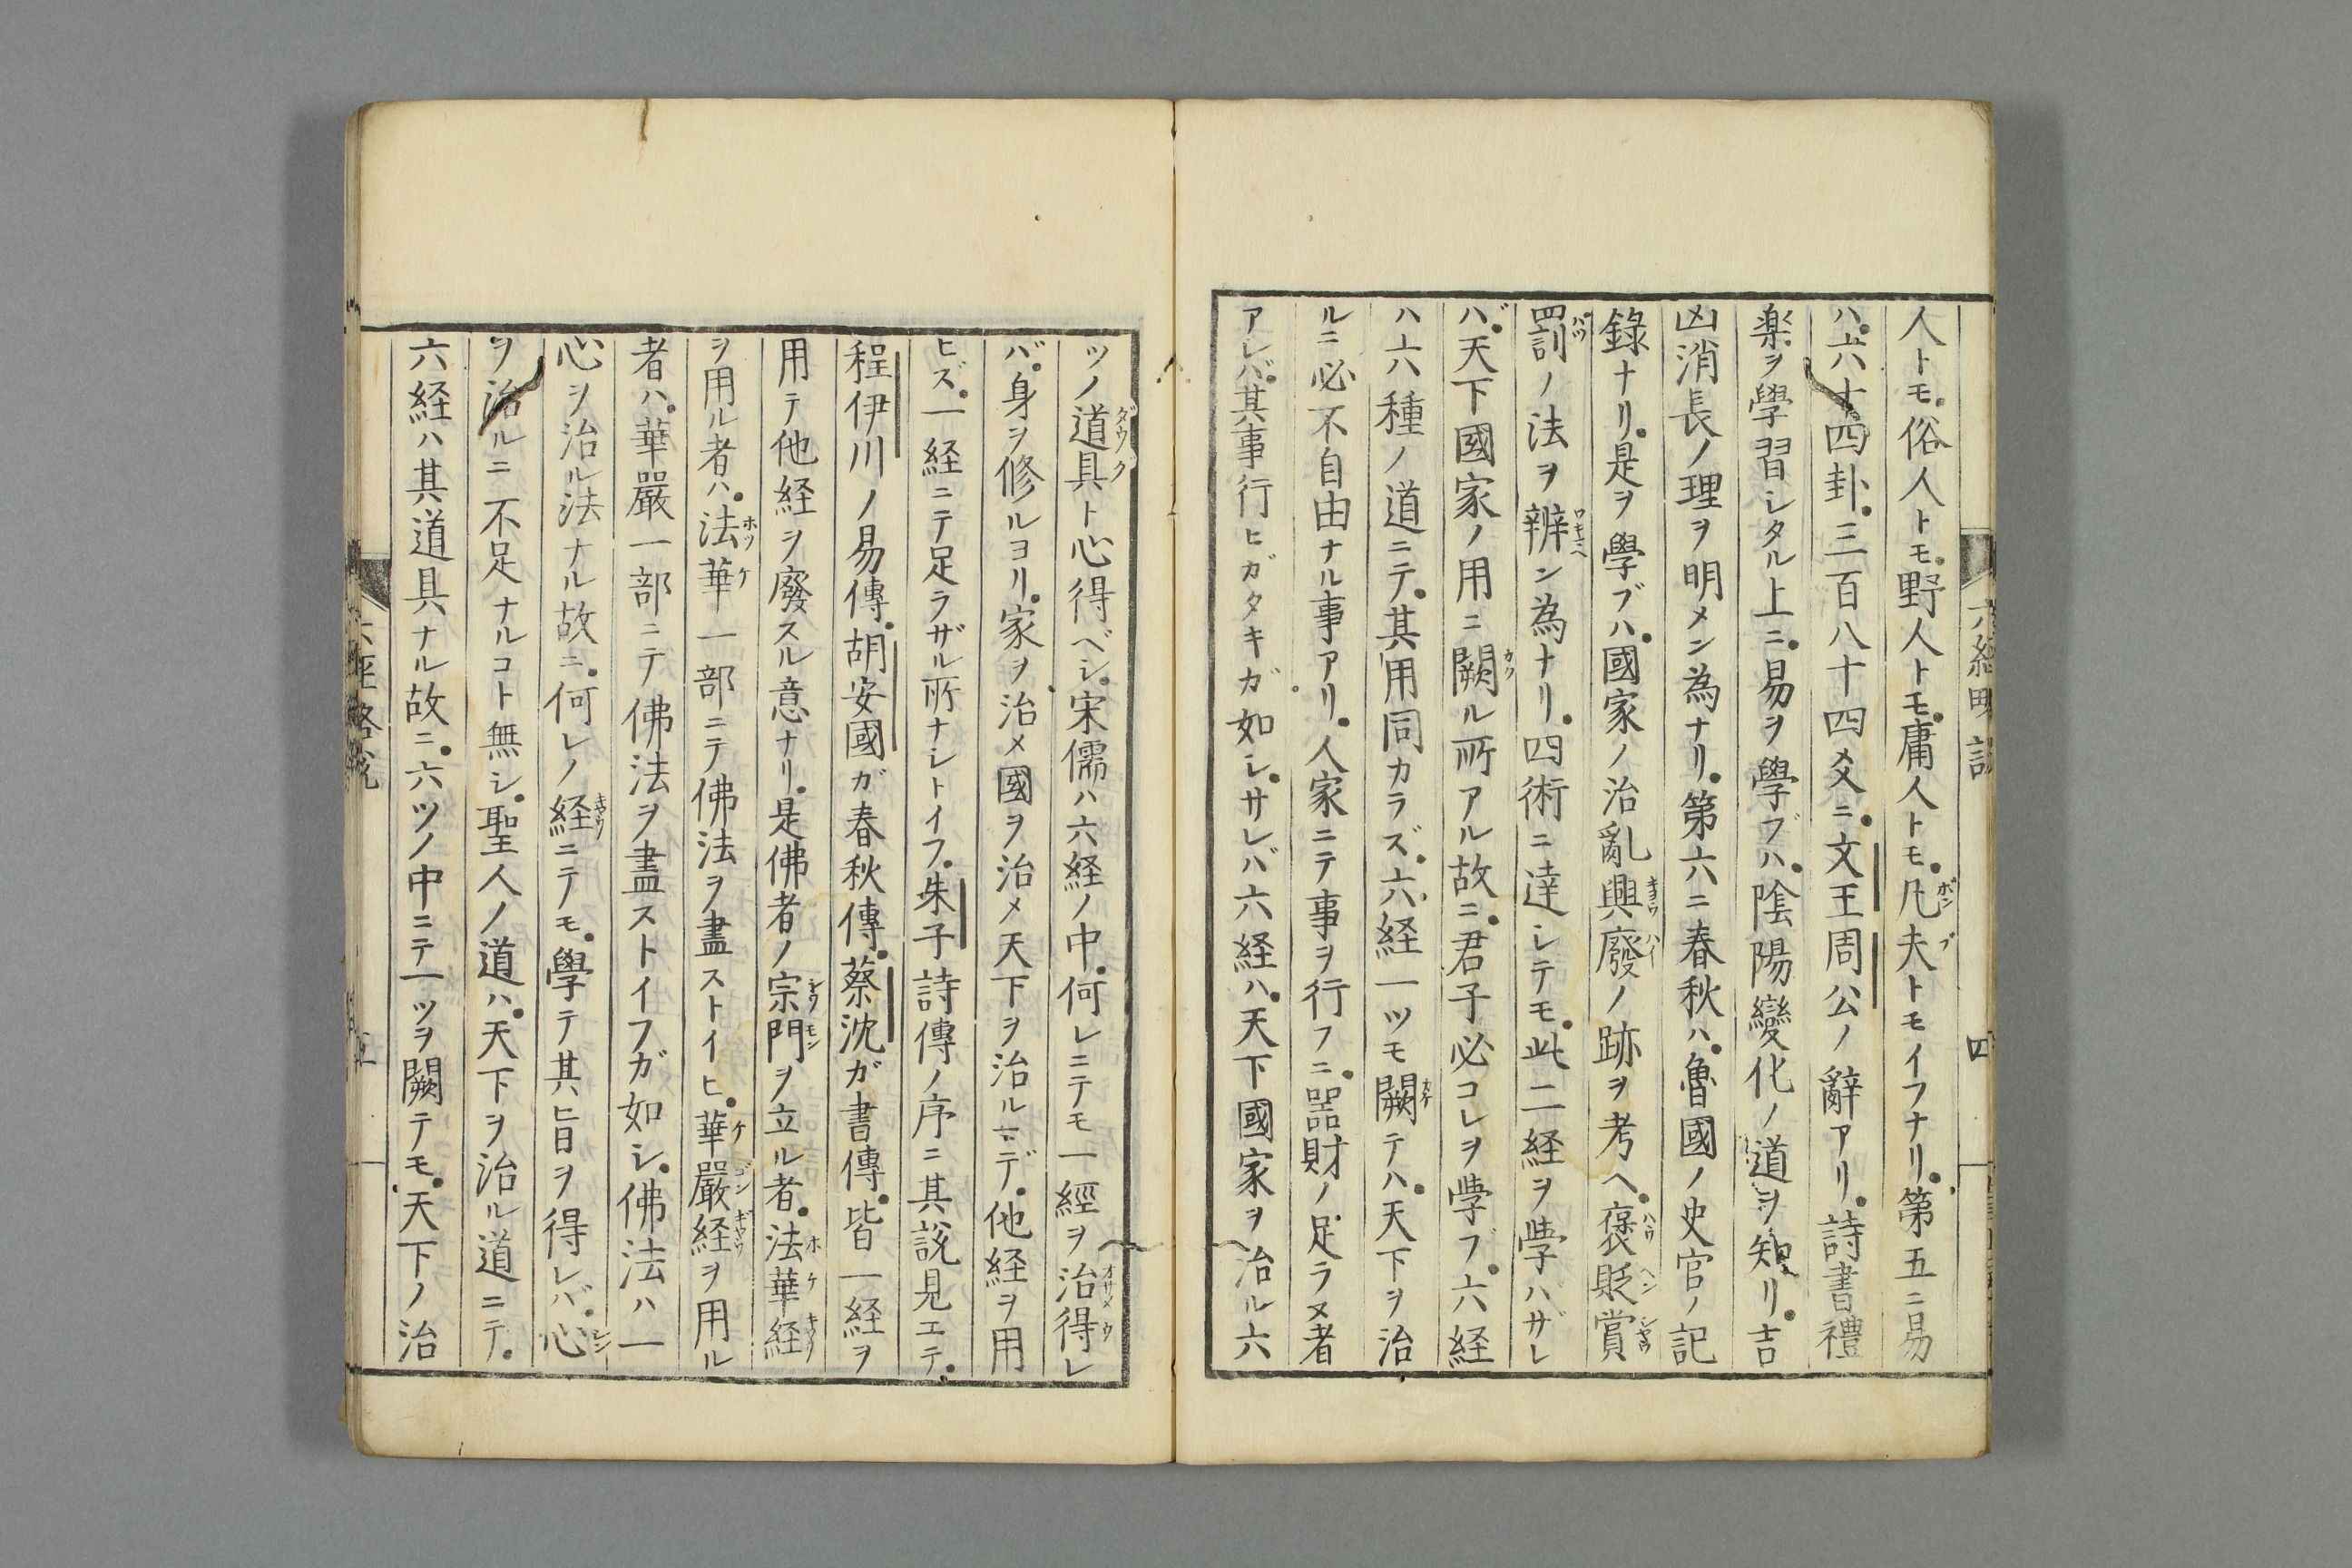 人トモ。俗人トモ。野人トモ。庸人トモ。凡夫トモイフナリ。第五ニ易
ハ。六十四卦。三百八十四爻ニ。文王周公ノ辭アリ。詩書禮
楽ヲ學習シタル上ニ。易ヲ學ブハ。陰陽變化ノ道ヲ知リ。吉
凶消長ノ理ヲ明メン為ナリ。第六ニ春秋ハ。魯國ノ史官ノ記
錄ナリ。是ヲ學ブハ。國家ノ治亂興廢ノ跡ヲ考ヘ。褒貶賞
罰ノ法ヲ辨ン為ナリ。四術ニ達シテモ。此二経ヲ學バザレ
バ。天下國家ノ用ニ闕ル所アル故ニ。君子必コレヲ學ブ。六経
ハ六種ノ道ニテ。其用同カラズ。六経一ツモ闕テハ。天下ヲ治
ルニ必不自由ナル事アリ。人家ニテ事ヲ行フニ。器財ノ足ラヌ者
アレバ。其事行ヒガタキガ如シ。サレバ六経ハ。天下國家ヲ治ル六
ツノ道具ト心得ベシ。宋儒ハ六経ノ中。何レニテモ一經ヲ治得レ
バ。身ヲ修ルヨリ。家ヲ治メ國ヲ治メ天下ヲ治ルマデ。他経ヲ用
ヒズ。一経ニテ足ラザル所ナシトイフ。朱子詩傳ノ序ニ其說見エテ。
程伊川ノ易傳。胡安國ガ春秋傳。蔡沈ガ書傳。皆一経ヲ
用テ他経ヲ廢スル意ナリ。是佛者ノ宗門ヲ立ル者。法華経
ヲ用ル者ハ。法華一部ニテ佛法ヲ盡ストイヒ。華嚴経ヲ用ル
者ハ。華嚴一部ニテ佛法ヲ盡ストイフガ如シ。佛法ハ一
心ヲ治ル法ナル故ニ。何レノ経ニテモ。學テ其旨ヲ得レバ。心
ヲ治ルニ不足ナルコト無シ。聖人ノ道ハ。天下ヲ治ル道ニテ。
六経ハ其道具ナル故ニ。六ツノ中ニテ一ツヲ闕テモ。天下ノ治